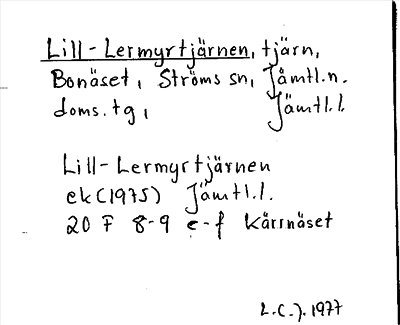 Lill-Lermyrtjärnen, tjärn,
Bonäset, Ströms sn, Jämtl.n.
doms.tg, Jämtl.l.
Lill-Lermyrtjärnen
ek(1975) Jämtl.l.
20 F 8-9 e-f Kärrnäset
L.C.J. 1977